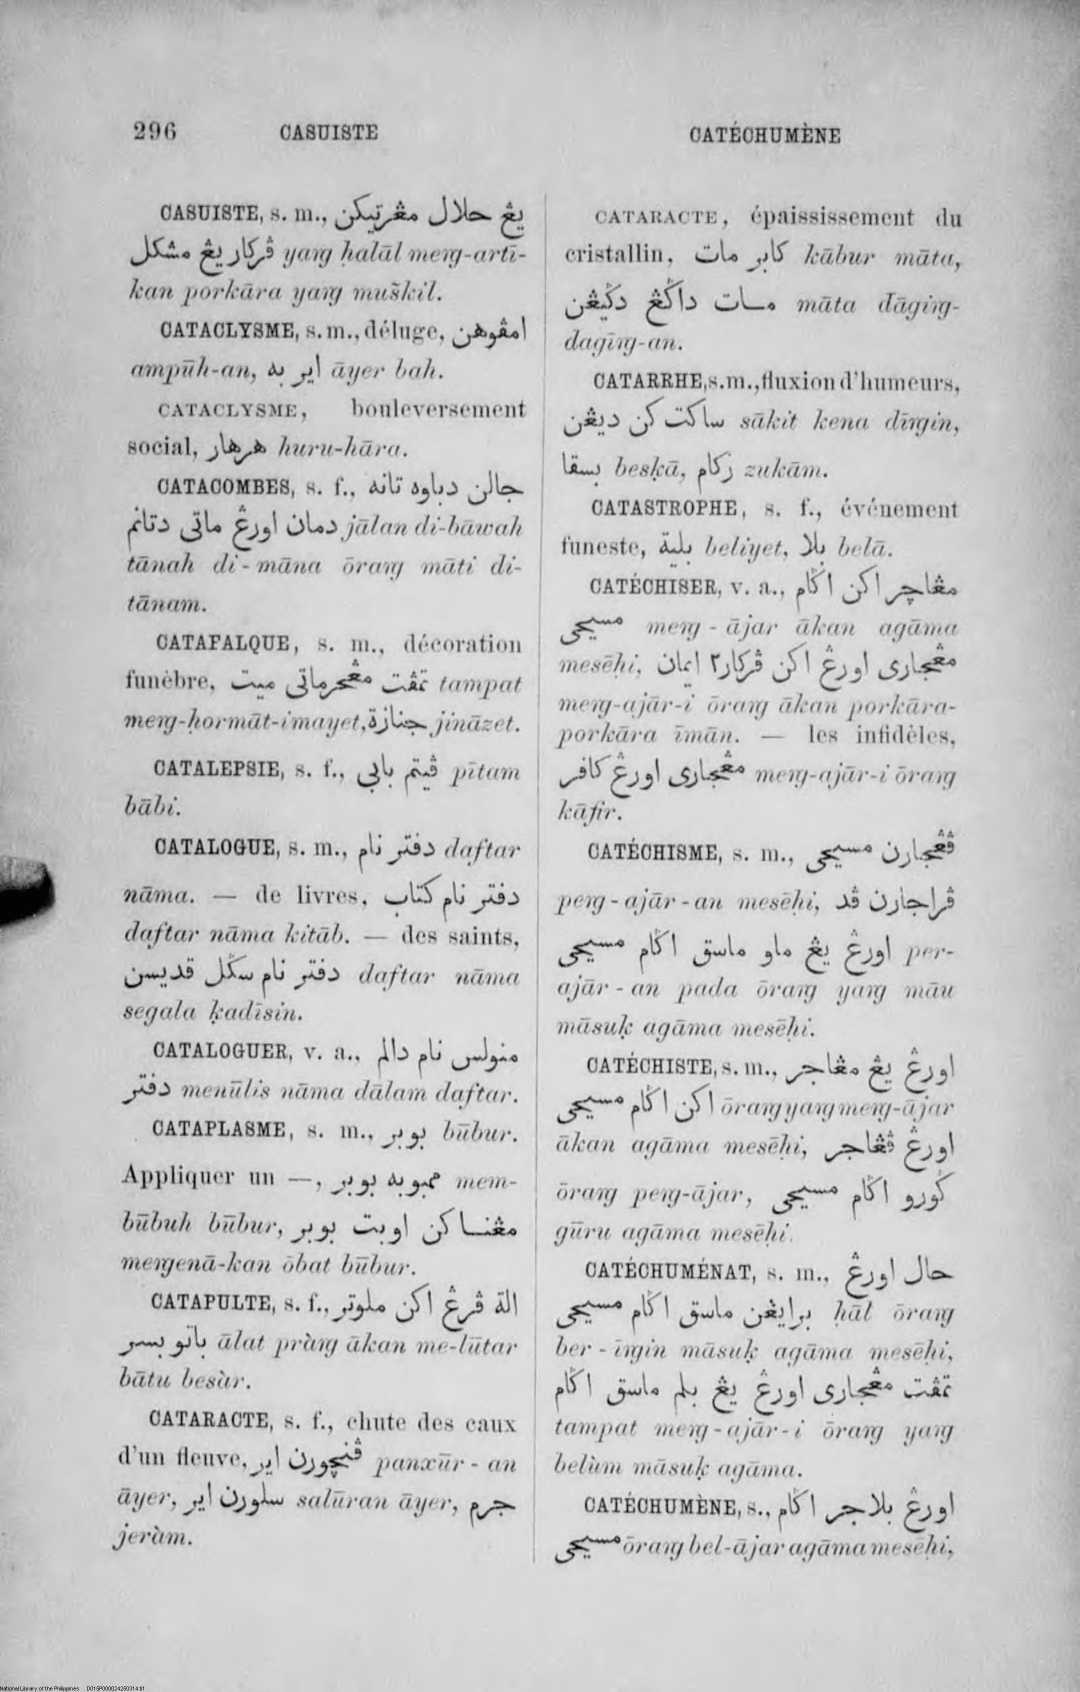 296 CASUISTE CATÉCHUMÈNE
CASUISTE, s. m., يڠ حلال مڠرتيكن
ڤركار يڠ مشكل yaŋ ḥalāl meŋ-artī-
kan porkāra yaŋ muškil.
CATACLYSME, s. m., déluge, امڤوهن
ampūh-an, اير به āyer bah.
CATACLYSME, bouleversement
social, هرهار huru-hāra.
CATACOMBES, s. f., جالن دباوه تانه
دمان اورڠ ماتى دتانم jālan di-bāwah
tānah di-māna ōraŋ māti di-
tānam.
CATAFALQUE, s. m., décoration
funèbre, تمڤت مڠحرماتى ميت tampat
meŋ-ḥormāt-i mayet, جنازة jināzet.
CATALEPSIE, s. f., ڤيتم بابى pītam
bābi.
CATALOGUE, s. m., دفتر نام daftar
nāma. — de livres, دفتر نام كتاب
daftar nāma kitāb. — des saints,
دفتر نام سݢل قديسن daftar nāma
segala ḳadīsin.
CATALOGUER, v. a., منولس نام دالم
دفتر menūlis nāma dālam daftar.
CATAPLASME, s. m., بوبر būbur.
Appliquer un —, ممبوبه بوبر mem-
būbuh būbur, مڠناكن اوبت بوبر
meŋgenā-kan ōbat būbur.
CATAPULTE, s. f., الة ڤرڠ اكن ملوتر
باتو بسر ālat pràŋ ākan me-lūtar
bātu besàr.
CATARACTE, s. f., chute des eaux
d'un fleuve, ڤنچورن اير panxūr-an
āyer, سلورن اير salūran āyer, جرم
jeràm.
CATARACTE, épaississement du
cristallin, كابر مات kābur māta,
مات داݢڠ دݢيڠن māta dāgiŋ-
dagīŋ-an.
CATARRHE, s. m., fluxion d'humeurs,
ساكت كن ديڠن sākit kena dīŋin,
بسقا besḳā, زكام zukām.
CATASTROPHE, s. f., événement
funeste, بلية beliyet, بلا belā.
CATÉCHISER, v. a., مڠاجر اكن اݢام
مسيحى meŋ-ājar ākan agāma
mesēḥi, مڠجارى اورڠ اكن ڤركار٢ ايمان
meŋ-ajār-i ōraŋ ākan porkāra-
porkāra īmān. — les infidèles,
مڠجارى اورڠ كافر meŋ-ajār-i ōraŋ
kāfir.
CATÉCHISME, s. m., ڤڠجارن مسيحى
peŋ-ajār-an mesēḥi, ڤراجارن ڤد
اورڠ يڠ ماو ماسق اݢام مسيحى per-
ajār-an pada ōraŋ yaŋ māu
māsuḳ agāma mesēḥi.
CATÉCHISTE, s. m., اورڠ يڠ مڠاجر
اكن اݢام مسيحى ōraŋ yaŋ meŋ-ājar
ākan agāma mesēḥi, اورڠ ڤڠاجر
ōraŋ peŋ-ājar, ݢورو اݢام مسيحى
gūru agāma mesēḥi.
CATÉCHUMÉNAT, s. m., حال اورڠ
برايڠن ماسق اݢام مسيحى ḥāl ōraŋ
ber-īŋin māsuḳ agāma mesēḥi,
تمڤت مڠجارى اورڠ يڠ بلم ماسق اݢام
tampat meŋ-ajār-i ōraŋ yaŋ
belùm māsuḳ agāma.
CATÉCHUMÈNE, s., اورڠ بلاجر اݢام
مسيحى ōraŋ bel-ājar agāma mesēḥi,
National Library of the Philippines